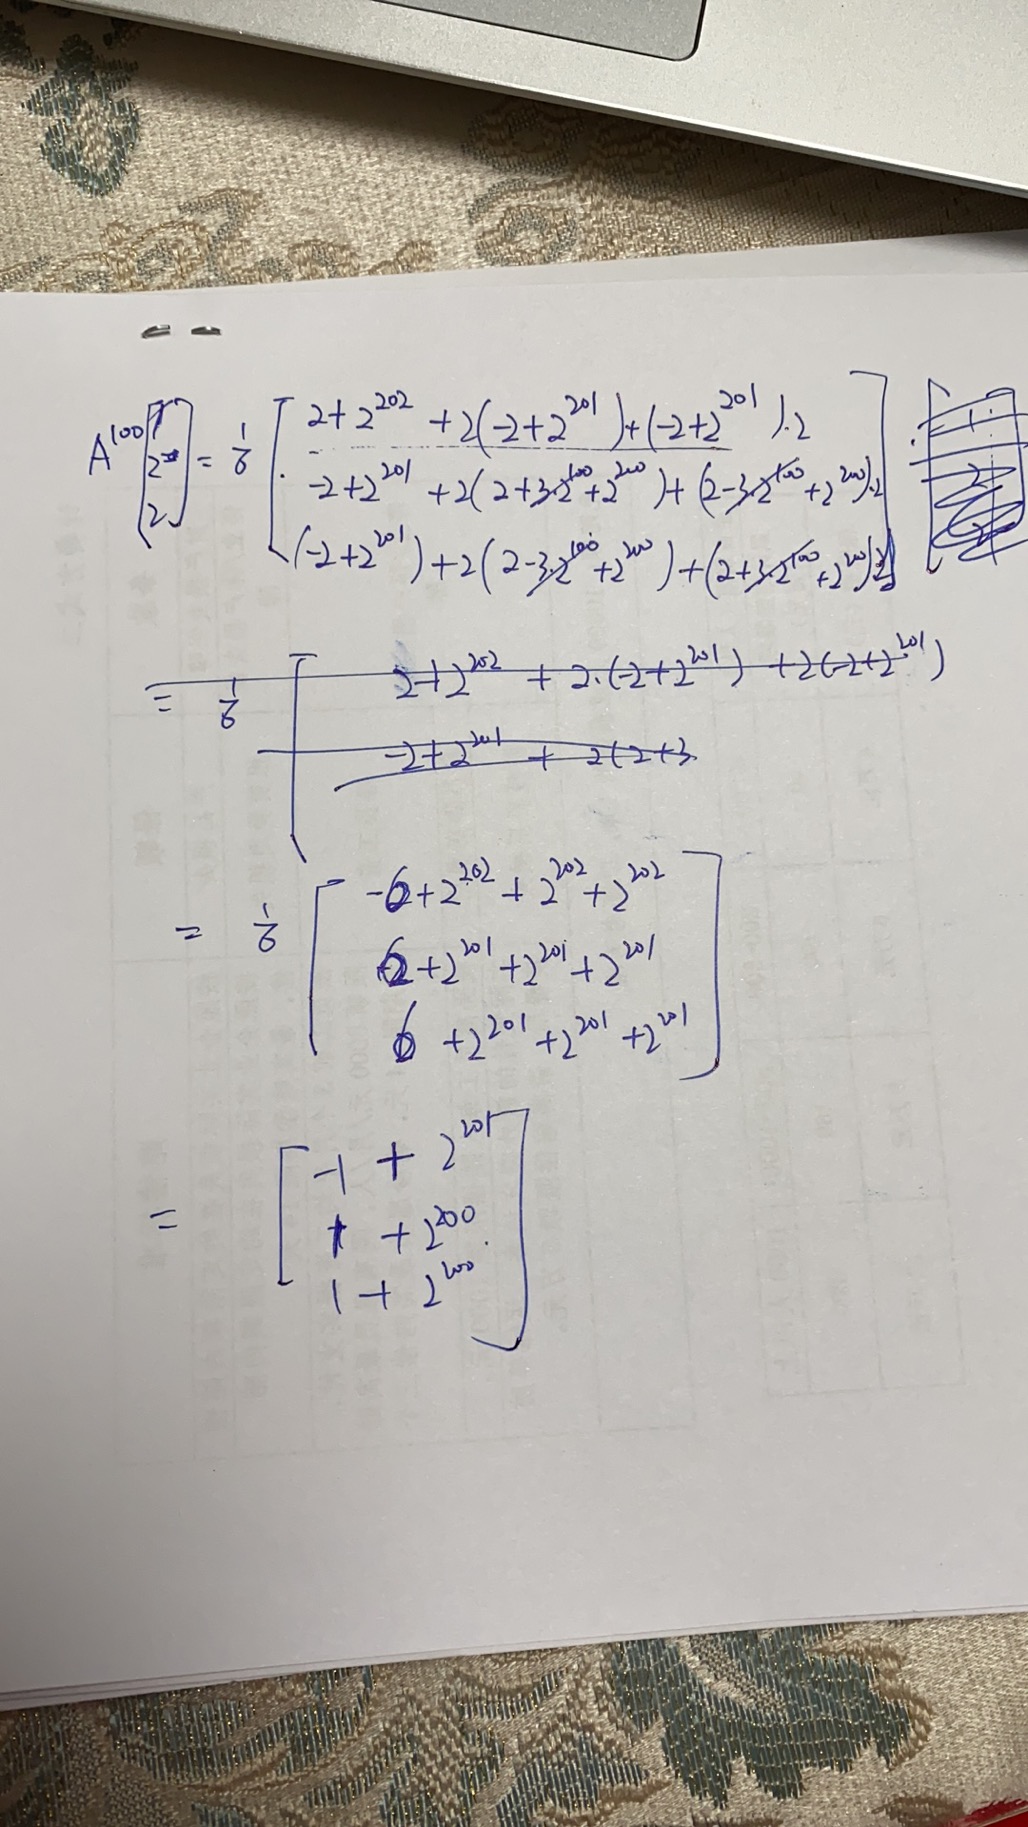 A^100 [1 2 2] = 1/6 [ 2+2^202 + 2(-2+2^201) + (-2+2^201).2
-2+2^201 + 2(2+3.2^100+2^200) + (2-3.2^100+2^200).2
(-2+2^201) + 2(2-3.2^100+2^200) + (2+3.2^100+2^200)2 ]
= 1/6 [ 2+2^202 + 2.(-2+2^201) + 2(-2+2^201)
-2+2^201 + 2(2+3.
= 1/6 [ -6+2^202 + 2^202 + 2^202
6+2^201 + 2^201 + 2^201
6 + 2^201 + 2^201 + 2^201 ]
= [ -1 + 2^201
1 + 2^200
1 + 2^200 ]